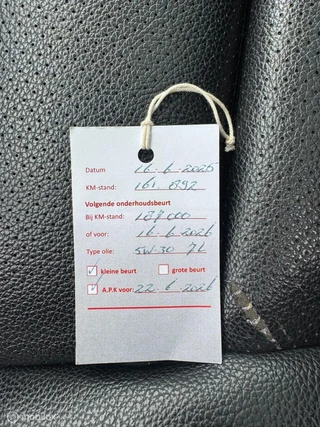 Datum 16-6-2025
KM-stand: 161.892
Volgende onderhoudsbeurt
Bij KM-stand:
of voor: 16-6-2026
Type olie: 5W-30 7L
kleine beurt grote beurt
A.P.K voor: 22-6-2026